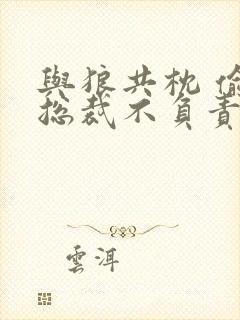 與狼共枕 偷
總裁不負責
雲洱